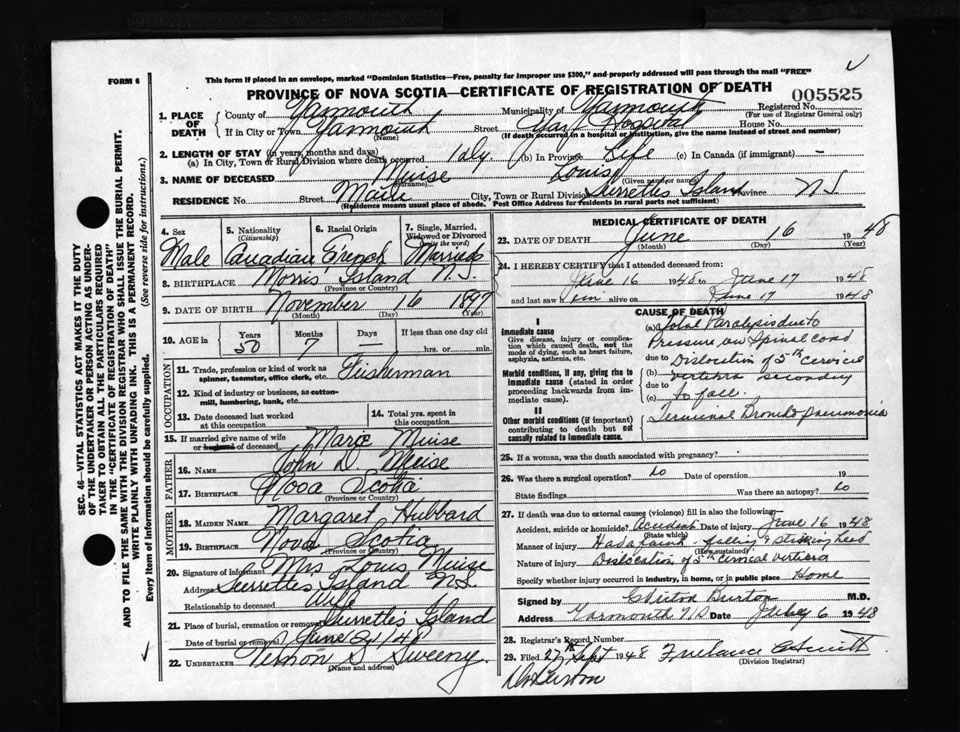 FORM 6
This form if placed in an envelope, marked "Dominion Statistics—Free, penalty for improper use $300," and properly addressed will pass through the mail "FREE"
PROVINCE OF NOVA SCOTIA—CERTIFICATE OF REGISTRATION OF DEATH
005525
1. PLACE OF DEATH
County of Yarmouth Municipality of Yarmouth Registered No.
(For use of Registrar General only)
If in City or Town Yarmouth Street Yar. Hospital House No.
(Name) (If death occurred in a hospital or institution, give the name instead of street and number)
2. LENGTH OF STAY (in years, months and days)
(a) In City, Town or Rural Division where death occurred 1 day. (b) In Province Life (c) In Canada (if immigrant) -
3. NAME OF DECEASED Muise Louis
(Surname) (Given or name)
RESIDENCE No. Street Main City, Town or Rural Division Surrettes Island Province N.S.
(Residence means usual place of abode. Post Office Address for residents in rural parts not sufficient)
4. Sex
Male
5. Nationality
(Citizenship)
Canadian
6. Racial Origin
French
7. Single, Married, Widowed or Divorced
(write the word)
Married
8. BIRTHPLACE Morris Island N.S.
(Province or Country)
9. DATE OF BIRTH November 16 1897
(Month) (Day) (Year)
10. AGE in
Years Months Days
50 7 —
hrs. or min.
OCCUPATION
11. Trade, profession or kind of work as spinner, teamster, office clerk, etc. Fisherman
12. Kind of industry or business, as cotton-mill, lumbering, bank, etc.
13. Date deceased last worked at this occupation
14. Total yrs. spent in this occupation
15. If married give name of wife or husband of deceased Marie Muise
FATHER
16. NAME John D. Muise
17. BIRTHPLACE Nova Scotia
(Province or Country)
MOTHER
18. MAIDEN NAME Margaret Hubbard
19. BIRTHPLACE Nova Scotia
(Province or Country)
20. Signature of informant Mrs Louis Muise
Address Surrettes Island N.S.
Relationship to deceased Wife
21. Place of burial, cremation or removal Surrettes Island
Date of burial or removal June 48
22. UNDERTAKER Vernon S. Sweeny.
(Name and address)
MEDICAL CERTIFICATE OF DEATH
23. DATE OF DEATH June 16 1948
(Month) (Day) (Year)
24. I HEREBY CERTIFY that I attended deceased from:
June 16 1948 to June 17 1948
and last saw him alive on June 17 1948
CAUSE OF DEATH
I
Immediate cause
Give disease, injury or complication which caused death, not the mode of dying, such as heart failure, asphyxia, asthenia, etc.
Morbid conditions, if any, giving rise to immediate cause (stated in order proceeding backwards from immediate cause).
II
Other morbid conditions (if important) contributing to death but not causally related to immediate cause.
(a) Total Paralysis due to
Pressure on Spinal Cord
due to Dislocation of 5th cervical
(b) vertebra secondary
due to
(c) to fall.
Terminal Broncho Pneumonia
25. If a woman, was the death associated with pregnancy?
26. Was there a surgical operation? No Date of operation 19
State findings Was there an autopsy? No
27. If death was due to external causes (violence) fill in also the following:
Accident, suicide or homicide? Accident Date of injury June 16 1948
(State which)
Manner of injury Had a faint - falling & striking head
(How sustained)
Nature of injury Dislocation of 5th cervical vertebra
Specify whether injury occurred in industry, in home, or in public place Home
Signed by Burton M.D.
Address Yarmouth N.S. Date July 6 1948
28. Registrar's Record Number
29. Filed 27th Sept 1948
(Division Registrar)
SEC. 46—VITAL STATISTICS ACT MAKES IT THE DUTY OF THE UNDERTAKER OR PERSON ACTING AS UNDERTAKER TO OBTAIN ALL THE PARTICULARS REQUIRED IN THE "CERTIFICATE OF REGISTRATION OF DEATH" AND TO FILE THE SAME WITH THE DIVISION REGISTRAR WHO SHALL ISSUE THE BURIAL PERMIT.
WRITE PLAINLY WITH UNFADING INK. THIS IS A PERMANENT RECORD.
Every item of information should be carefully supplied. (See reverse side for instructions.)